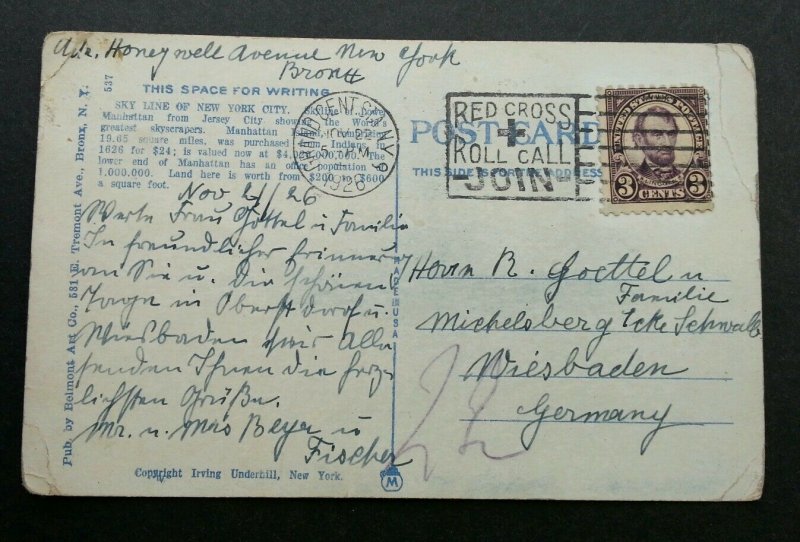 Honeywell Avenue New York
Bronx
THIS SPACE FOR WRITING
SKY LINE OF NEW YORK CITY. Skyline of Lower
Manhattan from Jersey City showing the World's
greatest skyscrapers. Manhattan Island, comprising
19.65 square miles, was purchased from Indians in
1626 for $24; is valued now at The
lower end of Manhattan has an office population of
1.000.000. Land here is worth from $200 to $600
a square foot.
Nov 21/26
Werte Frau Göttel u Familie
In freundlicher Erinner
an Sie u. Die schönen
Tage in Oberstdorf u.
Wiesbaden wir Alle
senden Ihnen die herz
lichsten Grüße.
Mr. u. Mrs Beyer u
Fischer
Copyright Irving Underhill, New York.
537
Pub. by Belmont Art Co., 531 E. Tremont Ave., Bronx, N. Y.
MADE IN USA
M
GRAND CENT. STA. N.Y.
NOV 22
5 PM
1926
RED CROSS
+
ROLL CALL
-JOIN-
POST CARD
THIS SIDE IS FOR THE ADDRESS
UNITED STATES POSTAGE
3 CENTS 3
Herrn R. Goettel u
Familie
Michelsberg Ecke Schwalb
Wiesbaden
Germany